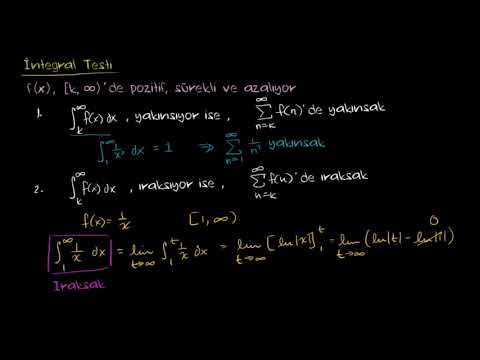 İntegral Testi
f(x), [k, ∞)'de pozitif, sürekli ve azalıyor
1. ∫_k^∞ f(x) dx, yakınsıyor ise, ∑_{n=k}^∞ f(n)'de yakınsak
∫_1^∞ 1/x² dx = 1 ⇒ ∑_{n=1}^∞ 1/n² yakınsak
2. ∫_k^∞ f(x) dx, ıraksıyor ise, ∑_{n=k}^∞ f(n)'de ıraksak
f(x) = 1/x [1, ∞)
∫_1^∞ 1/x dx = lim_{t→∞} ∫_1^t 1/x dx = lim_{t→∞} [ln|x|]_1^t = lim_{t→∞} (ln|t| - ln|1|) 0
Iraksak